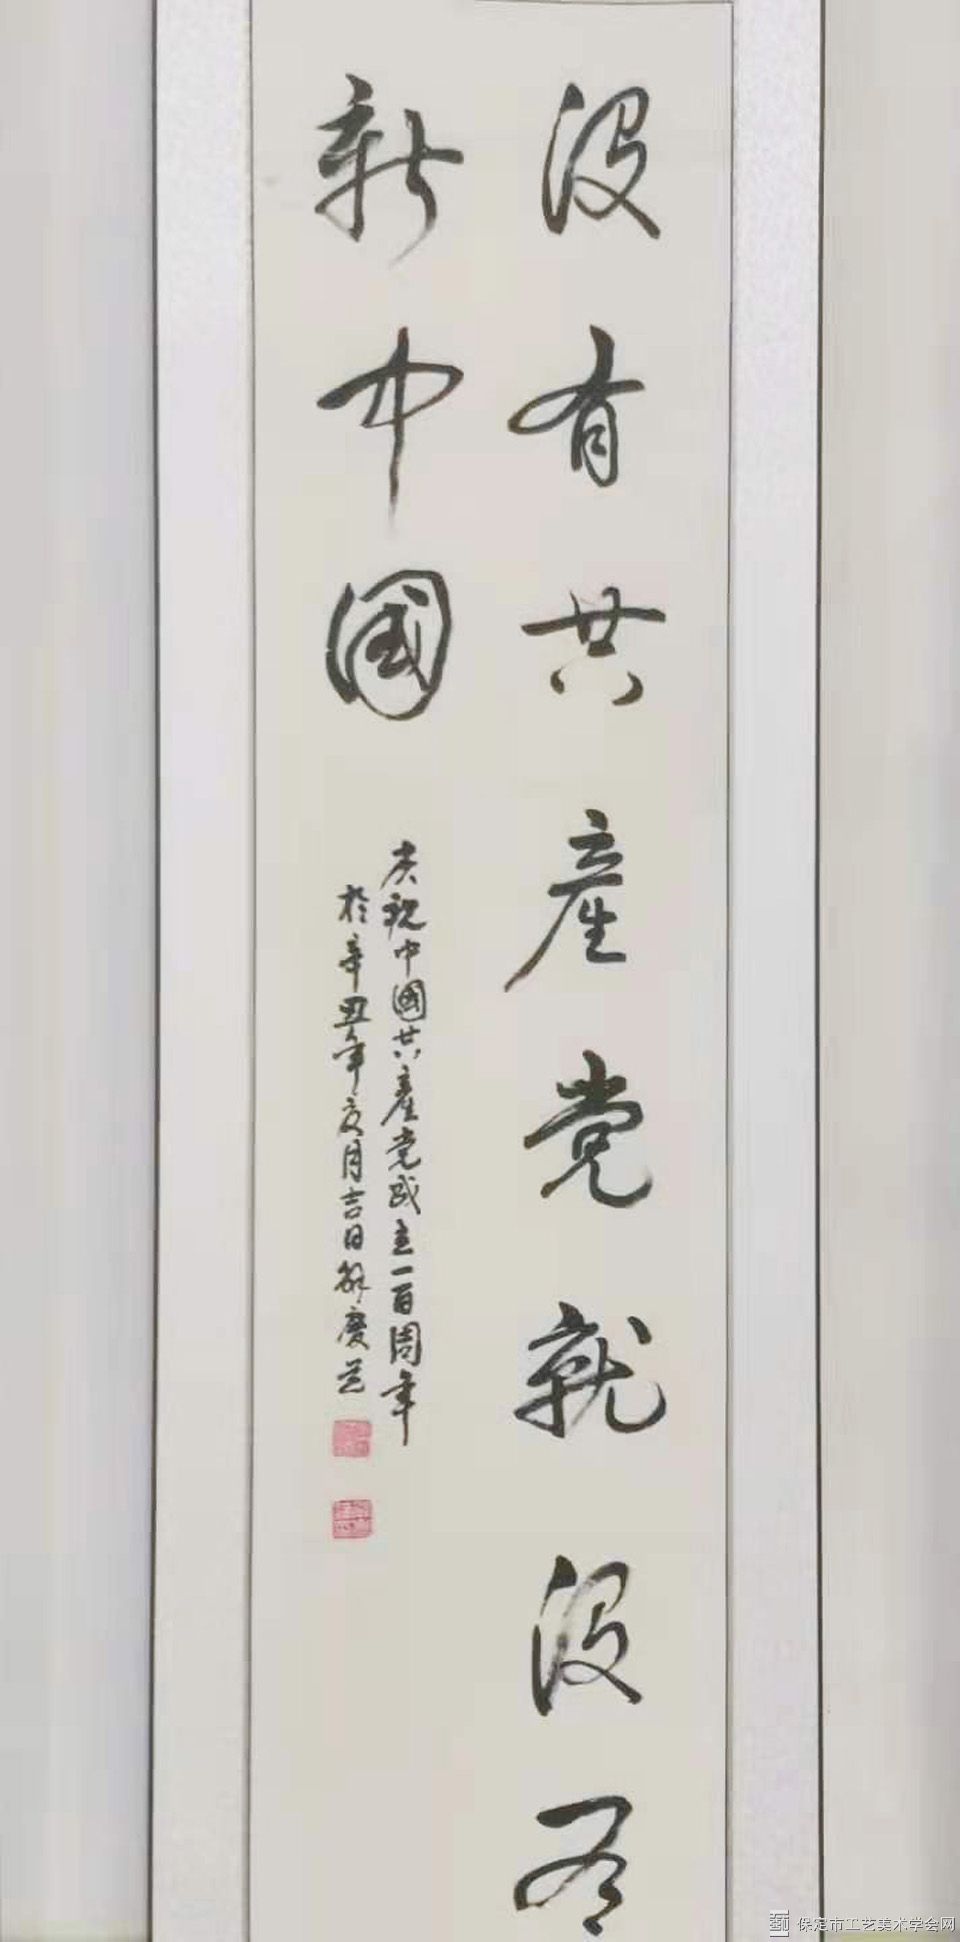 没有共产党就没有
新中國
庆祝中國共産党成立一百周年
於辛丑年亥月吉日解慶芝
保定市工艺美术学会网